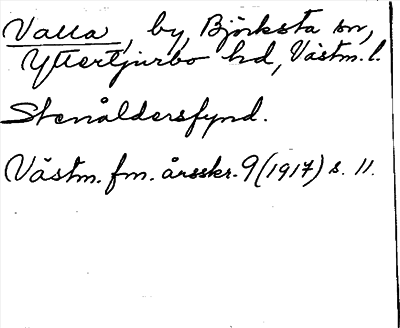 Valla, by, Björksta sn,
Yttertjurbo hd, Västm. l.
Stenåldersfynd.
Västm. fm. årsskr. 9 (1917) s. 11.